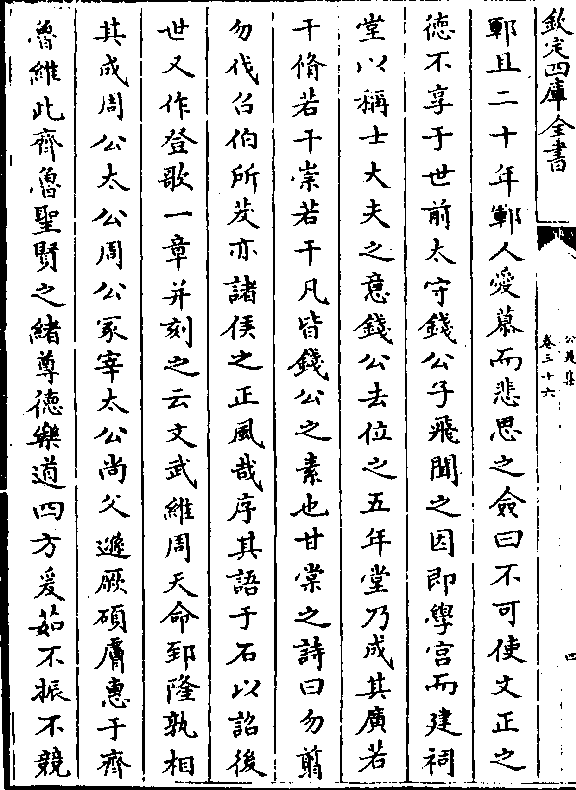 欽定四庫全書
公是集
卷三十六
四
鄆且二十年鄆人愛慕而悲思之僉曰不可使文正之
徳不享于世前太守錢公子飛聞之因即學宮而建祠
堂以稱士大夫之意錢公去位之五年堂乃成其廣若
干脩若干崇若干凡皆錢公之素也甘棠之詩曰勿翦
勿伐召伯所茇亦諸侯之正風哉序其語于石以詔後
世又作登歌一章并刻之云文武維周天命郅隆孰相
其成周公太公周公冡宰太公尚父遜厥碩膚惠于齊
魯維此齊魯聖賢之緒尊徳樂道四方爰茹不振不競